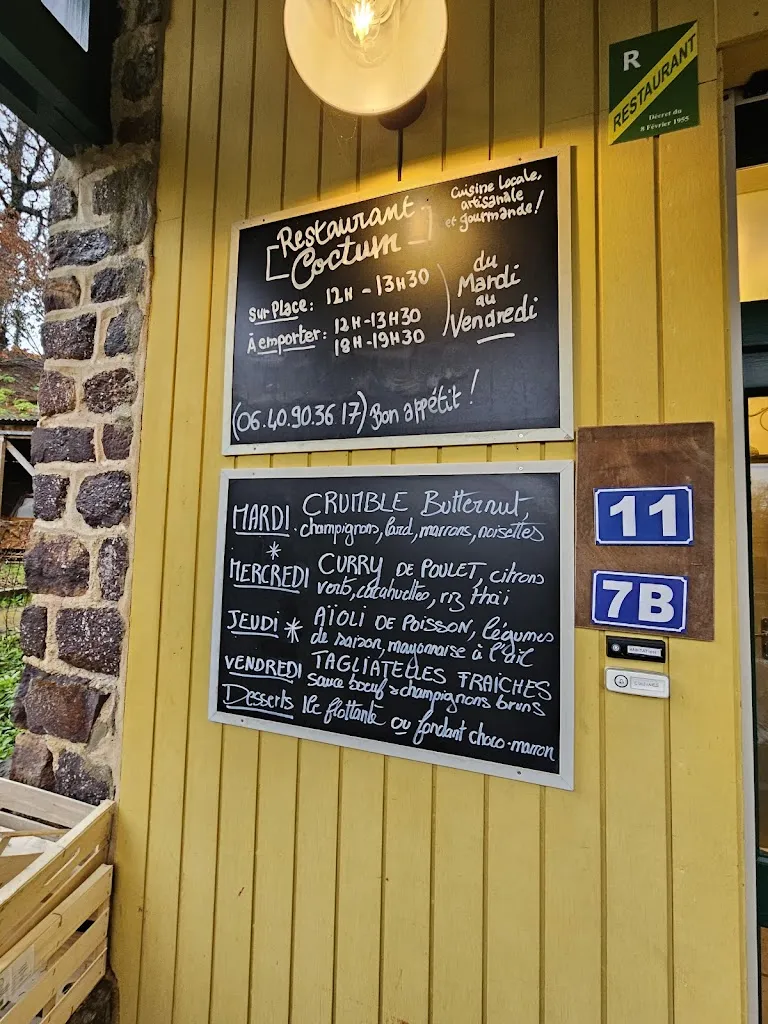 R
RESTAURANT
Décret du
8 Février 1955
Restaurant
Coctum
Cuisine Locale,
artisanale
et gourmande!
Sur Place: 12H - 13H30
À emporter: 12H-13H30
18H-19H30
du
Mardi
au
Vendredi
(06.40.90.36 17) Bon appétit !
MARDI CRUMBLE Butternut,
champignons, lard, marrons, noisettes
MERCREDI CURRY DE POULET, citrons
verts, cacahuètes, riz thaï
JEUDI AÏOLI DE POISSON, légumes
de saison, mayonnaise à l'ail
VENDREDI TAGLIATELLES FRAICHES
sauce boeuf & champignons bruns
Desserts Ile flottante ou fondant choco-marron
11
7B